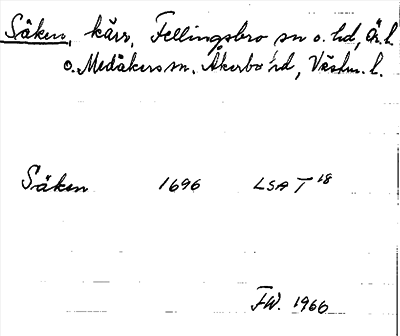 Säken, kärr, Fellingsbro sn o. hd, Ör. l.
o. Medåkers sn. Åkerbo hd, Västm. l.
Säken 1696 LSA T 18
FW. 1966